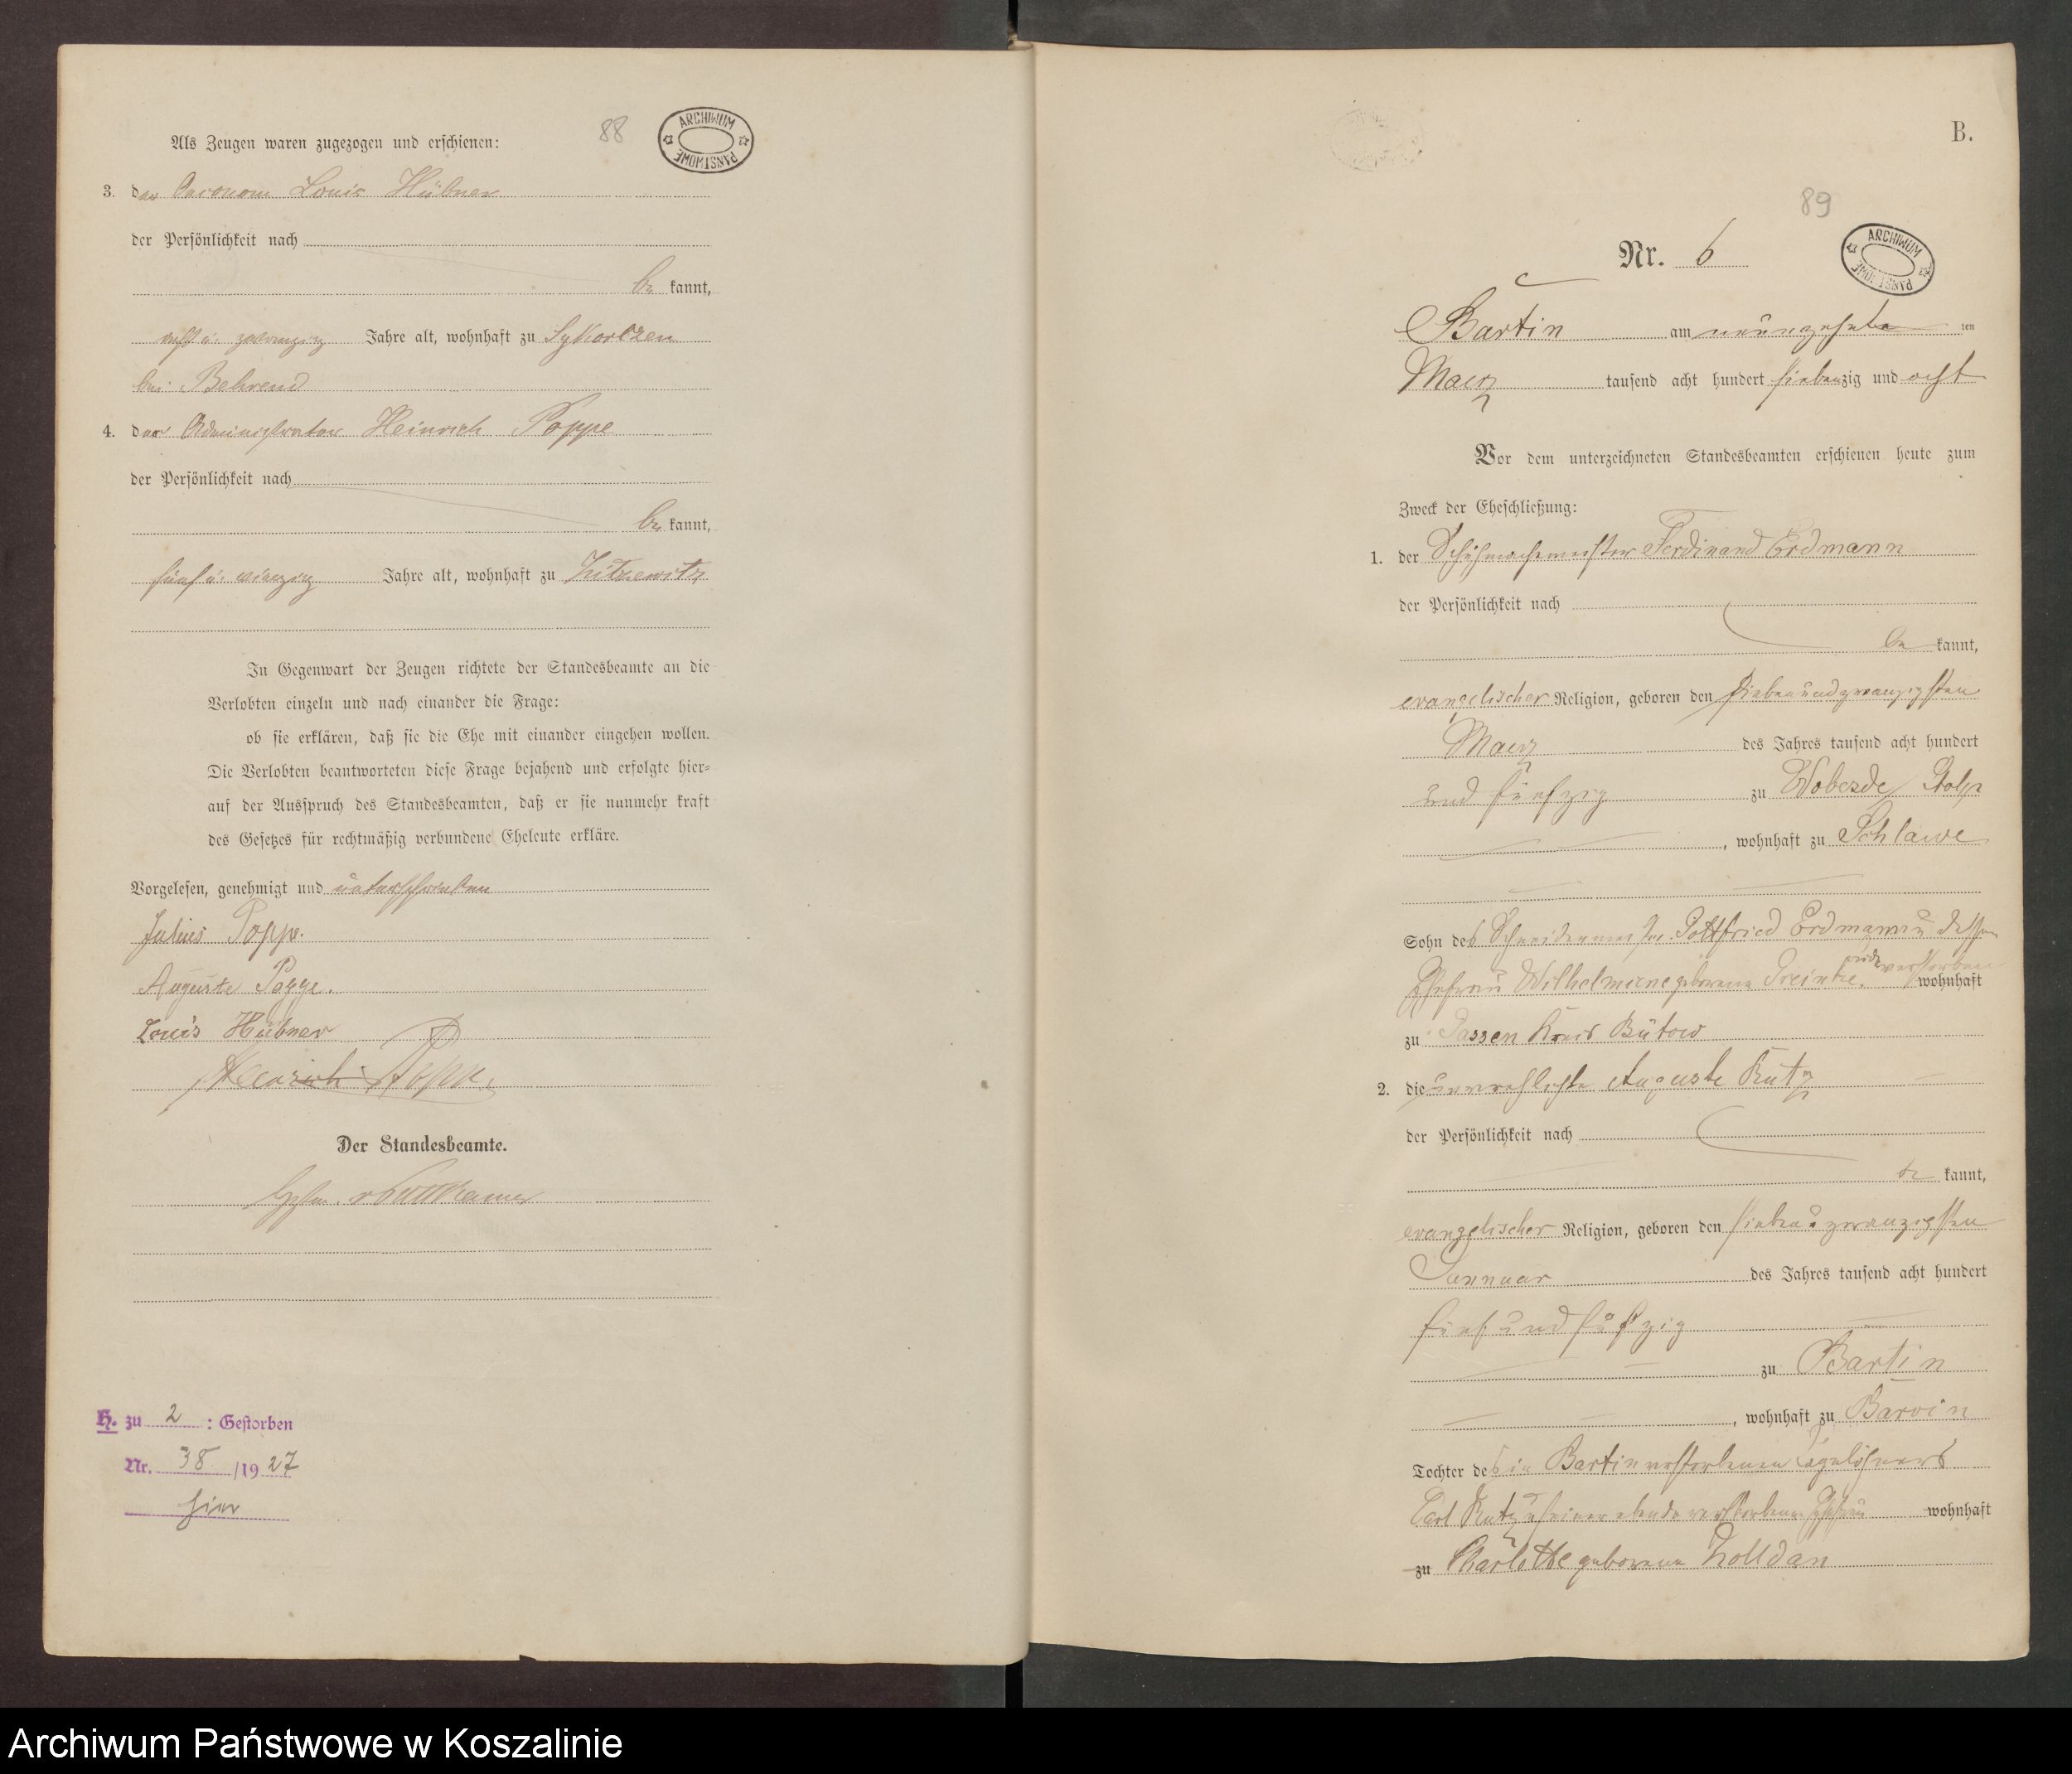 Als Zeugen waren zugezogen und erschienen:
88
ARCHIWUM PAŃSTWOWE
3. der Oeconom Louis Hübner
der Persönlichkeit nach
be kannt,
acht u. zwanzig Jahre alt, wohnhaft zu
bei Behrend
4. der Administrator Heinrich Poppe
der Persönlichkeit nach
be kannt,
fünf u. vierzig Jahre alt, wohnhaft zu Zitzewitz
In Gegenwart der Zeugen richtete der Standesbeamte an die
Verlobten einzeln und nach einander die Frage:
ob sie erklären, daß sie die Ehe mit einander eingehen wollen.
Die Verlobten beantworteten diese Frage bejahend und erfolgte hier-
auf der Ausspruch des Standesbeamten, daß er sie nunmehr kraft
des Gesetzes für rechtmäßig verbundene Eheleute erkläre.
Vorgelesen, genehmigt und unterschrieben
Julius Poppe.
Auguste Poppe.
Louis Hübner
Heinrich Poppe
Der Standesbeamte.
v Puttkamer
H. zu 2 : Gestorben
Nr. 38 /19 27
hier
B.
89
Nr. 6
ARCHIWUM PAŃSTWOWE
Bartin am neunzehnten ten
Maerz tausend acht hundert siebenzig und acht
Vor dem unterzeichneten Standesbeamten erschienen heute zum
Zweck der Eheschließung:
1. der Schuhmachermeister Ferdinand Erdmann
der Persönlichkeit nach
be kannt,
evangelischer Religion, geboren den siebenundzwanzigsten
Maerz des Jahres tausend acht hundert
und fünfzig zu Wobesde, Stolp
, wohnhaft zu Schlawe
Sohn des Schneidermeister Gottfried Erdmann u dessen
Ehefrau Wilhelmine geborene verstorben wohnhaft
zu Jassen Kreis Bütow
2. die unverehelichte Auguste Rutz
der Persönlichkeit nach
be kannt,
evangelischer Religion, geboren den sieben u zwanzigsten
Januar des Jahres tausend acht hundert
fünf und fünfzig
zu Bartin
, wohnhaft zu Barvin
Tochter des in Bartin verstorbenen Tagelöhners
Carl Rutz u seiner ebenda verstorbenen Ehefrau wohnhaft
zu Charlotte geborene Zolldan
Archiwum Państwowe w Koszalinie